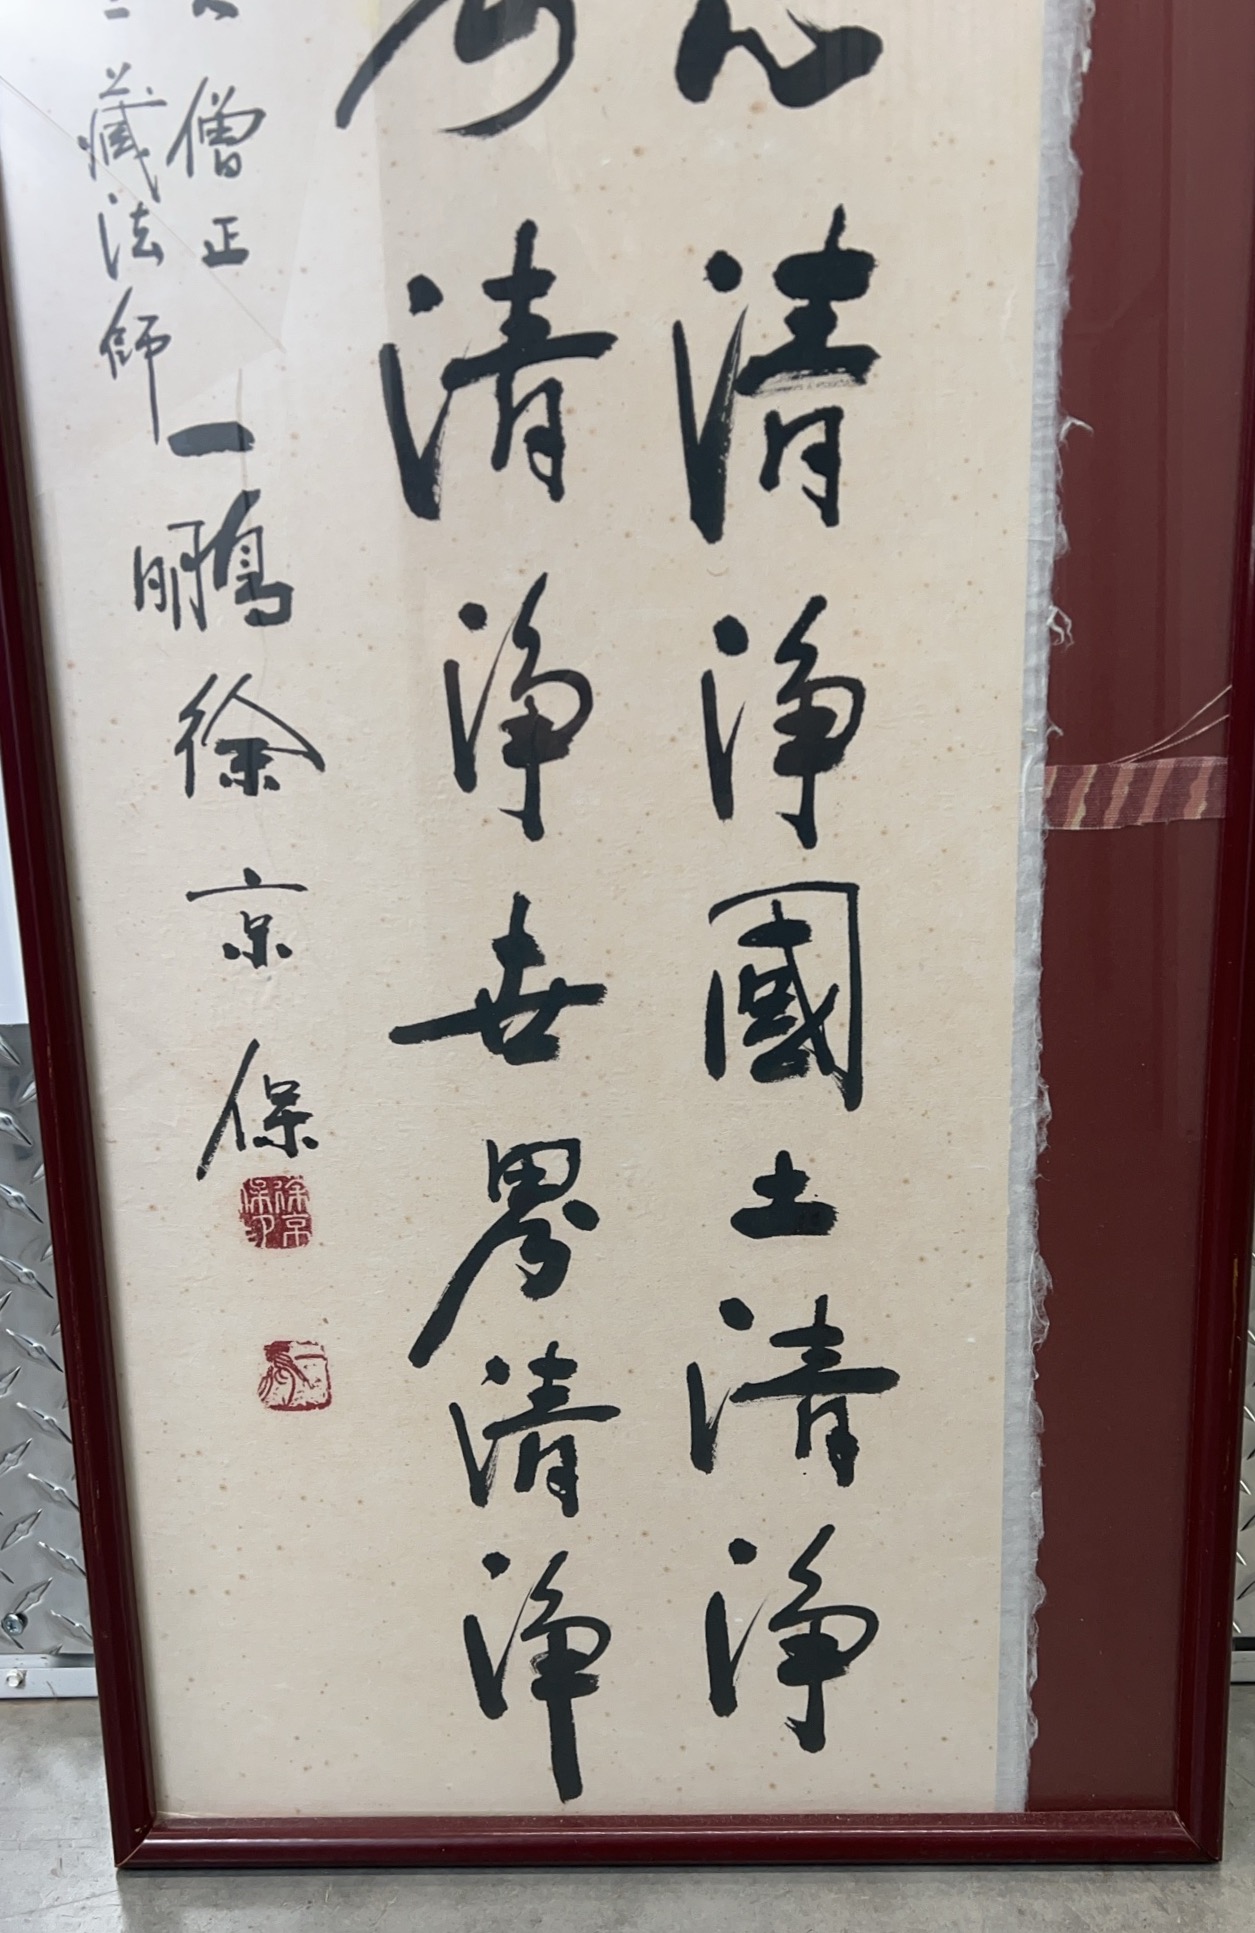 心清淨國土清淨
清淨世界清淨
僧正
藏法師
一鵬徐京保
徐京保印
一鵬